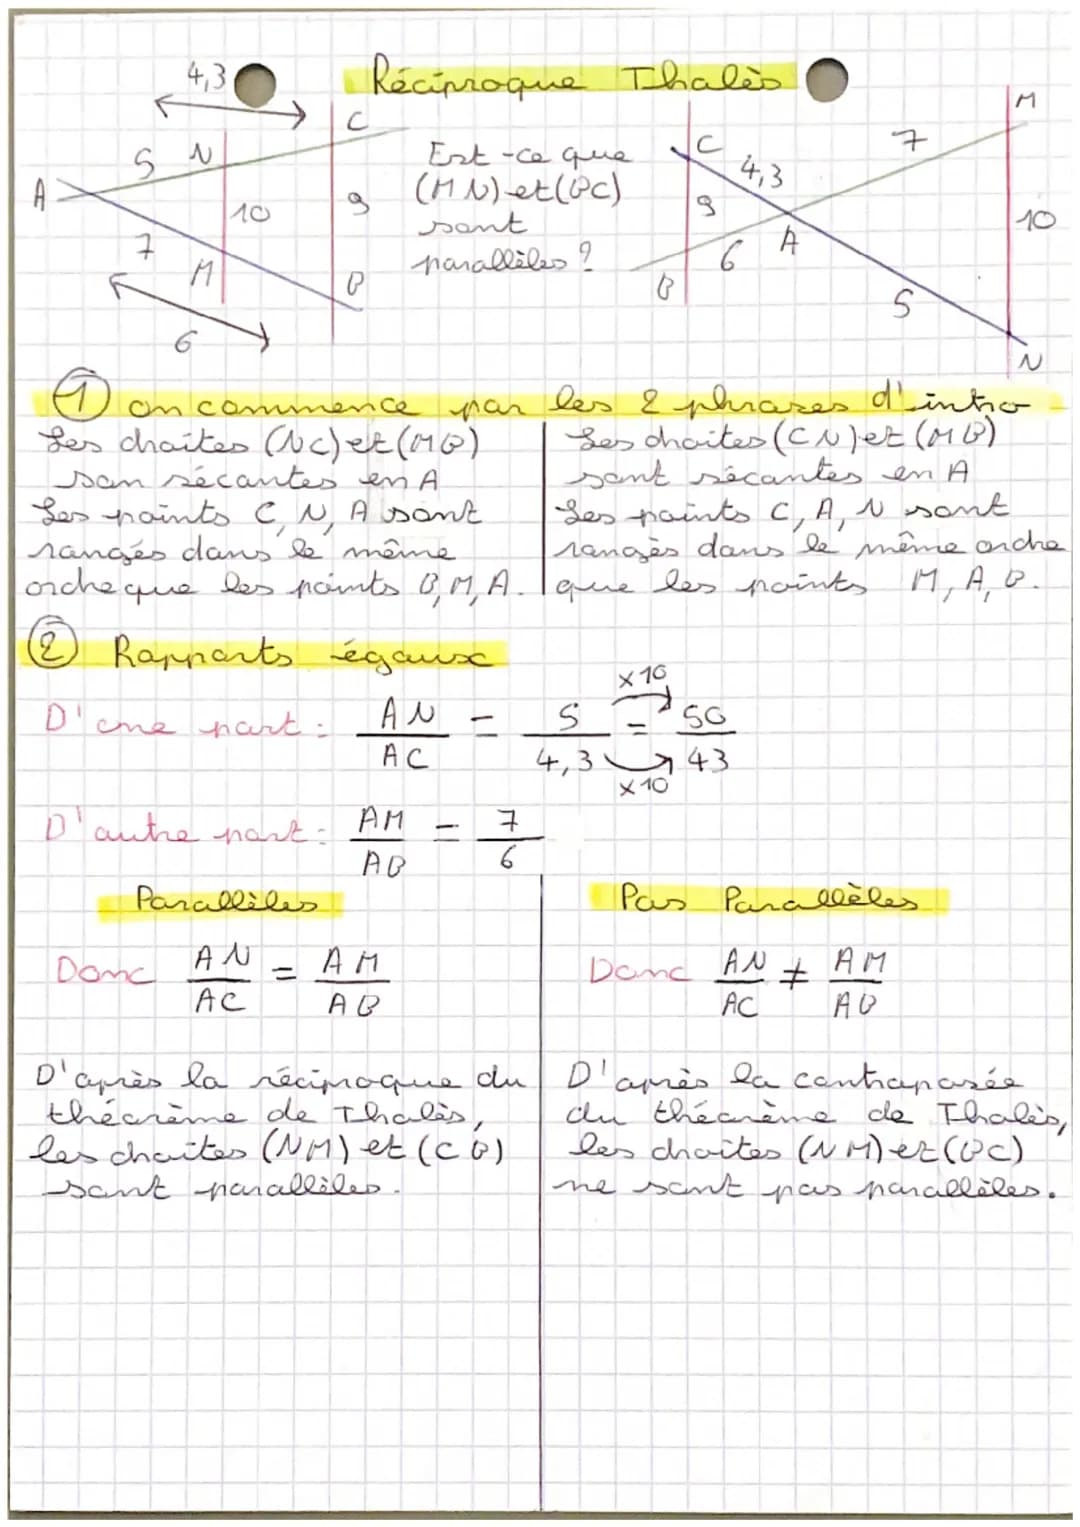 4,3
Réciproque Thalès
A
5
N
C
10
9
7
M
B
6
Est-ce que
(MN) et (BC)
sont
parallèles ?
C
4,3
7
M
9
10
6
A
B
5
N
① on commence par les 2 phrases d'intro
Les droites (NC) et (MB)
son sécantes en A
Les points C, N, A sont
rangés dans le même
ordre que les points B, M, A.
Les droites (CN) et (MB)
sont sécantes en A
Les points C, A, N sont
rangès dans le même ordre
que les points M, A, B.
② Rapports égaux
x10
D'une part : AN/AC = 5/4,3 = 50/43
x10
D'autre part : AM/AB = 7/6
Parallèles
Donc AN/AC = AM/AB
D'après la réciproque du
théorème de Thalès,
les droites (NM) et (CB)
sont parallèles.
Pas Parallèles
Donc AN/AC ≠ AM/AB
D'après la contraposée
du théorème de Thalès,
les droites (NM) et (BC)
ne sont pas parallèles.